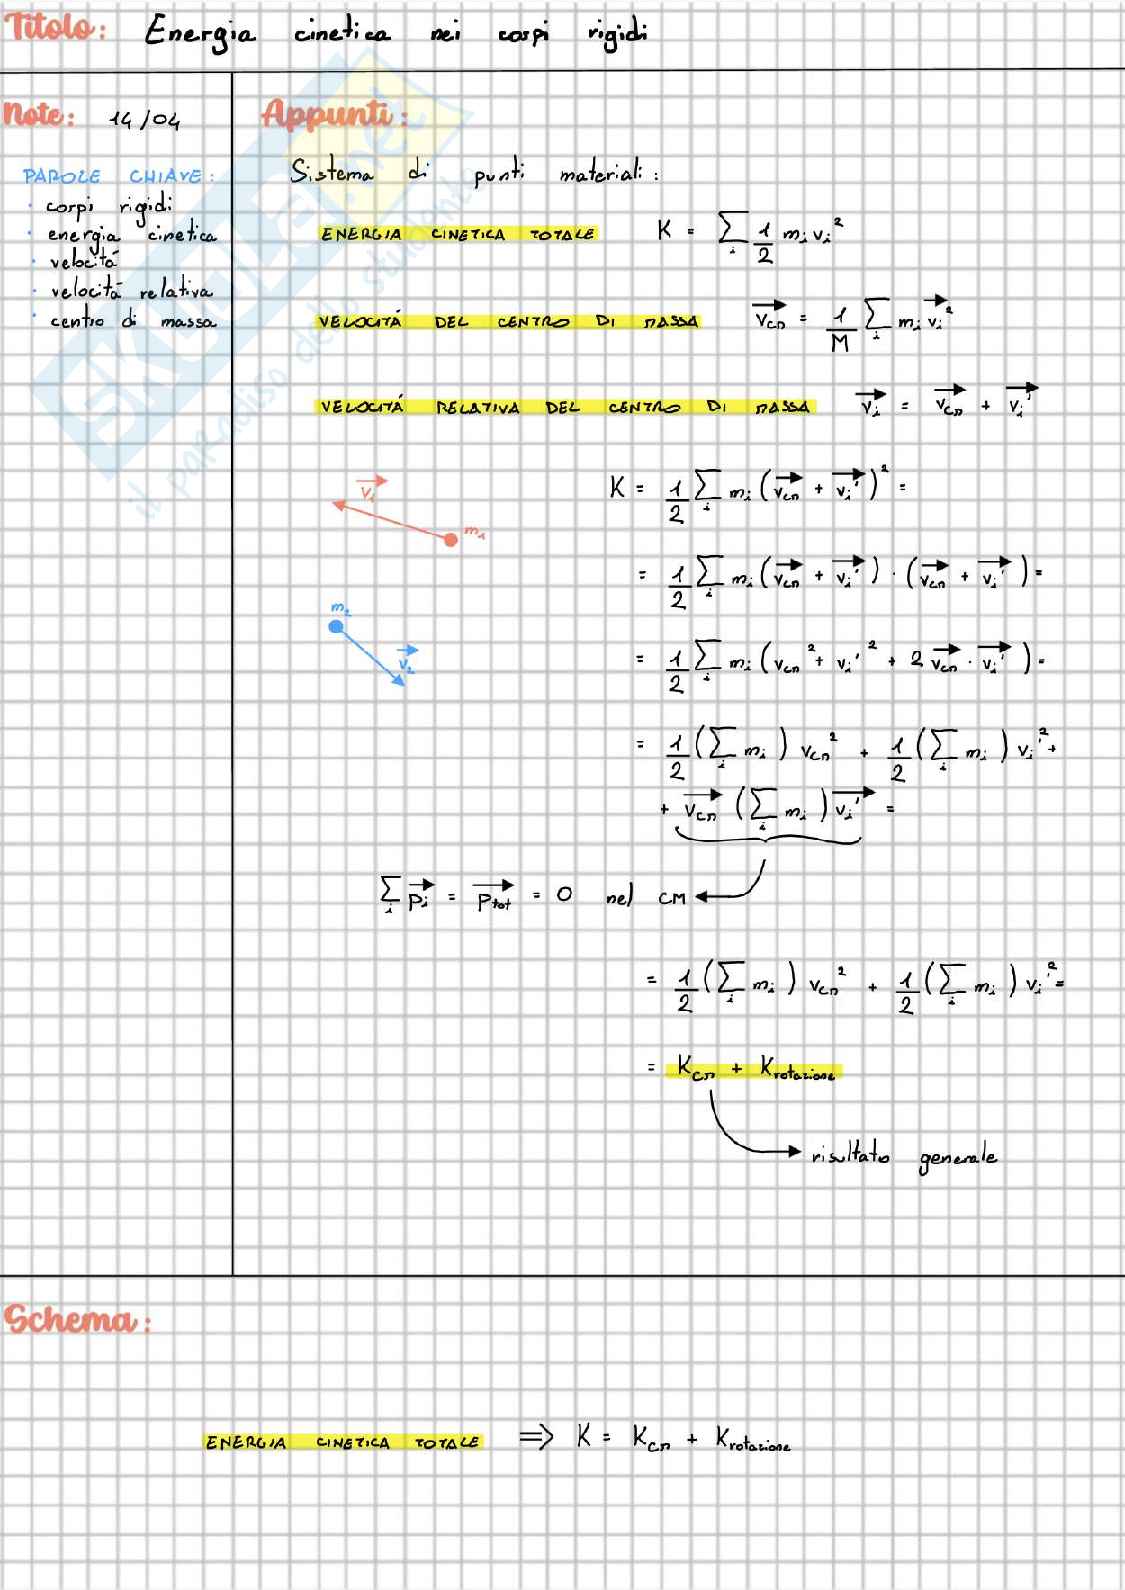 Titolo: Energia cinetica nei corpi rigidi
Note: 14/04
PAROLE CHIAVE:
· corpi rigidi
· energia cinetica
· velocitá
· velocitá relativa
· centro di massa
Appunti:
Sistema di punti materiali:
ENERGIA CINETICA TOTALE K = ∑_i 1/2 m_i v_i²
VELOCITÁ DEL CENTRO DI MASSA v⃗_CM = 1/M ∑_i m_i v⃗_i²
VELOCITÁ RELATIVA DEL CENTRO DI MASSA v⃗_i = v⃗_CM + v⃗_i'
v⃗_1 m_1
m_2
v⃗_2
K = 1/2 ∑_i m_i (v⃗_CM + v⃗_i')² =
= 1/2 ∑_i m_i (v⃗_CM + v⃗_i') · (v⃗_CM + v⃗_i') =
= 1/2 ∑_i m_i (v_CM² + v_i'² + 2 v⃗_CM · v⃗_i') =
= 1/2 (∑_i m_i) v_CM² + 1/2 (∑_i m_i) v_i'² +
+ v⃗_CM (∑_i m_i) v⃗_i' =
∑_i p⃗_i = p⃗_tot = 0 nel CM
= 1/2 (∑_i m_i) v_CM² + 1/2 (∑_i m_i) v_i'² =
= K_CM + K_rotazione
risultato generale
Schema:
ENERGIA CINETICA TOTALE ⇒ K = K_CM + K_rotazione
SKUOLA.net
il paradiso dello studente